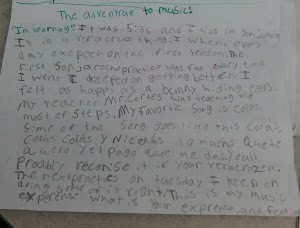 The adventrae to music!
"Im learning" It was 5:36 and I was in Son Jarocho
It is in veracruz thing I went every
day exepect on the first season. The
first Son jarocho practice was fun every time
I went I keeped on getting better. I
felt as happy as a bunny hiding eggs.
My teacher Mr. Cortes was teaching me
most of steps. My favorite song is colas.
Some of the song goes like this colas,
Colas Colas y Nicolas
a youll
Proably reconise it if your veracruzen.
The next practies on tuesday I keep on
doing some of it right. This is my music
experense what is your exprense and